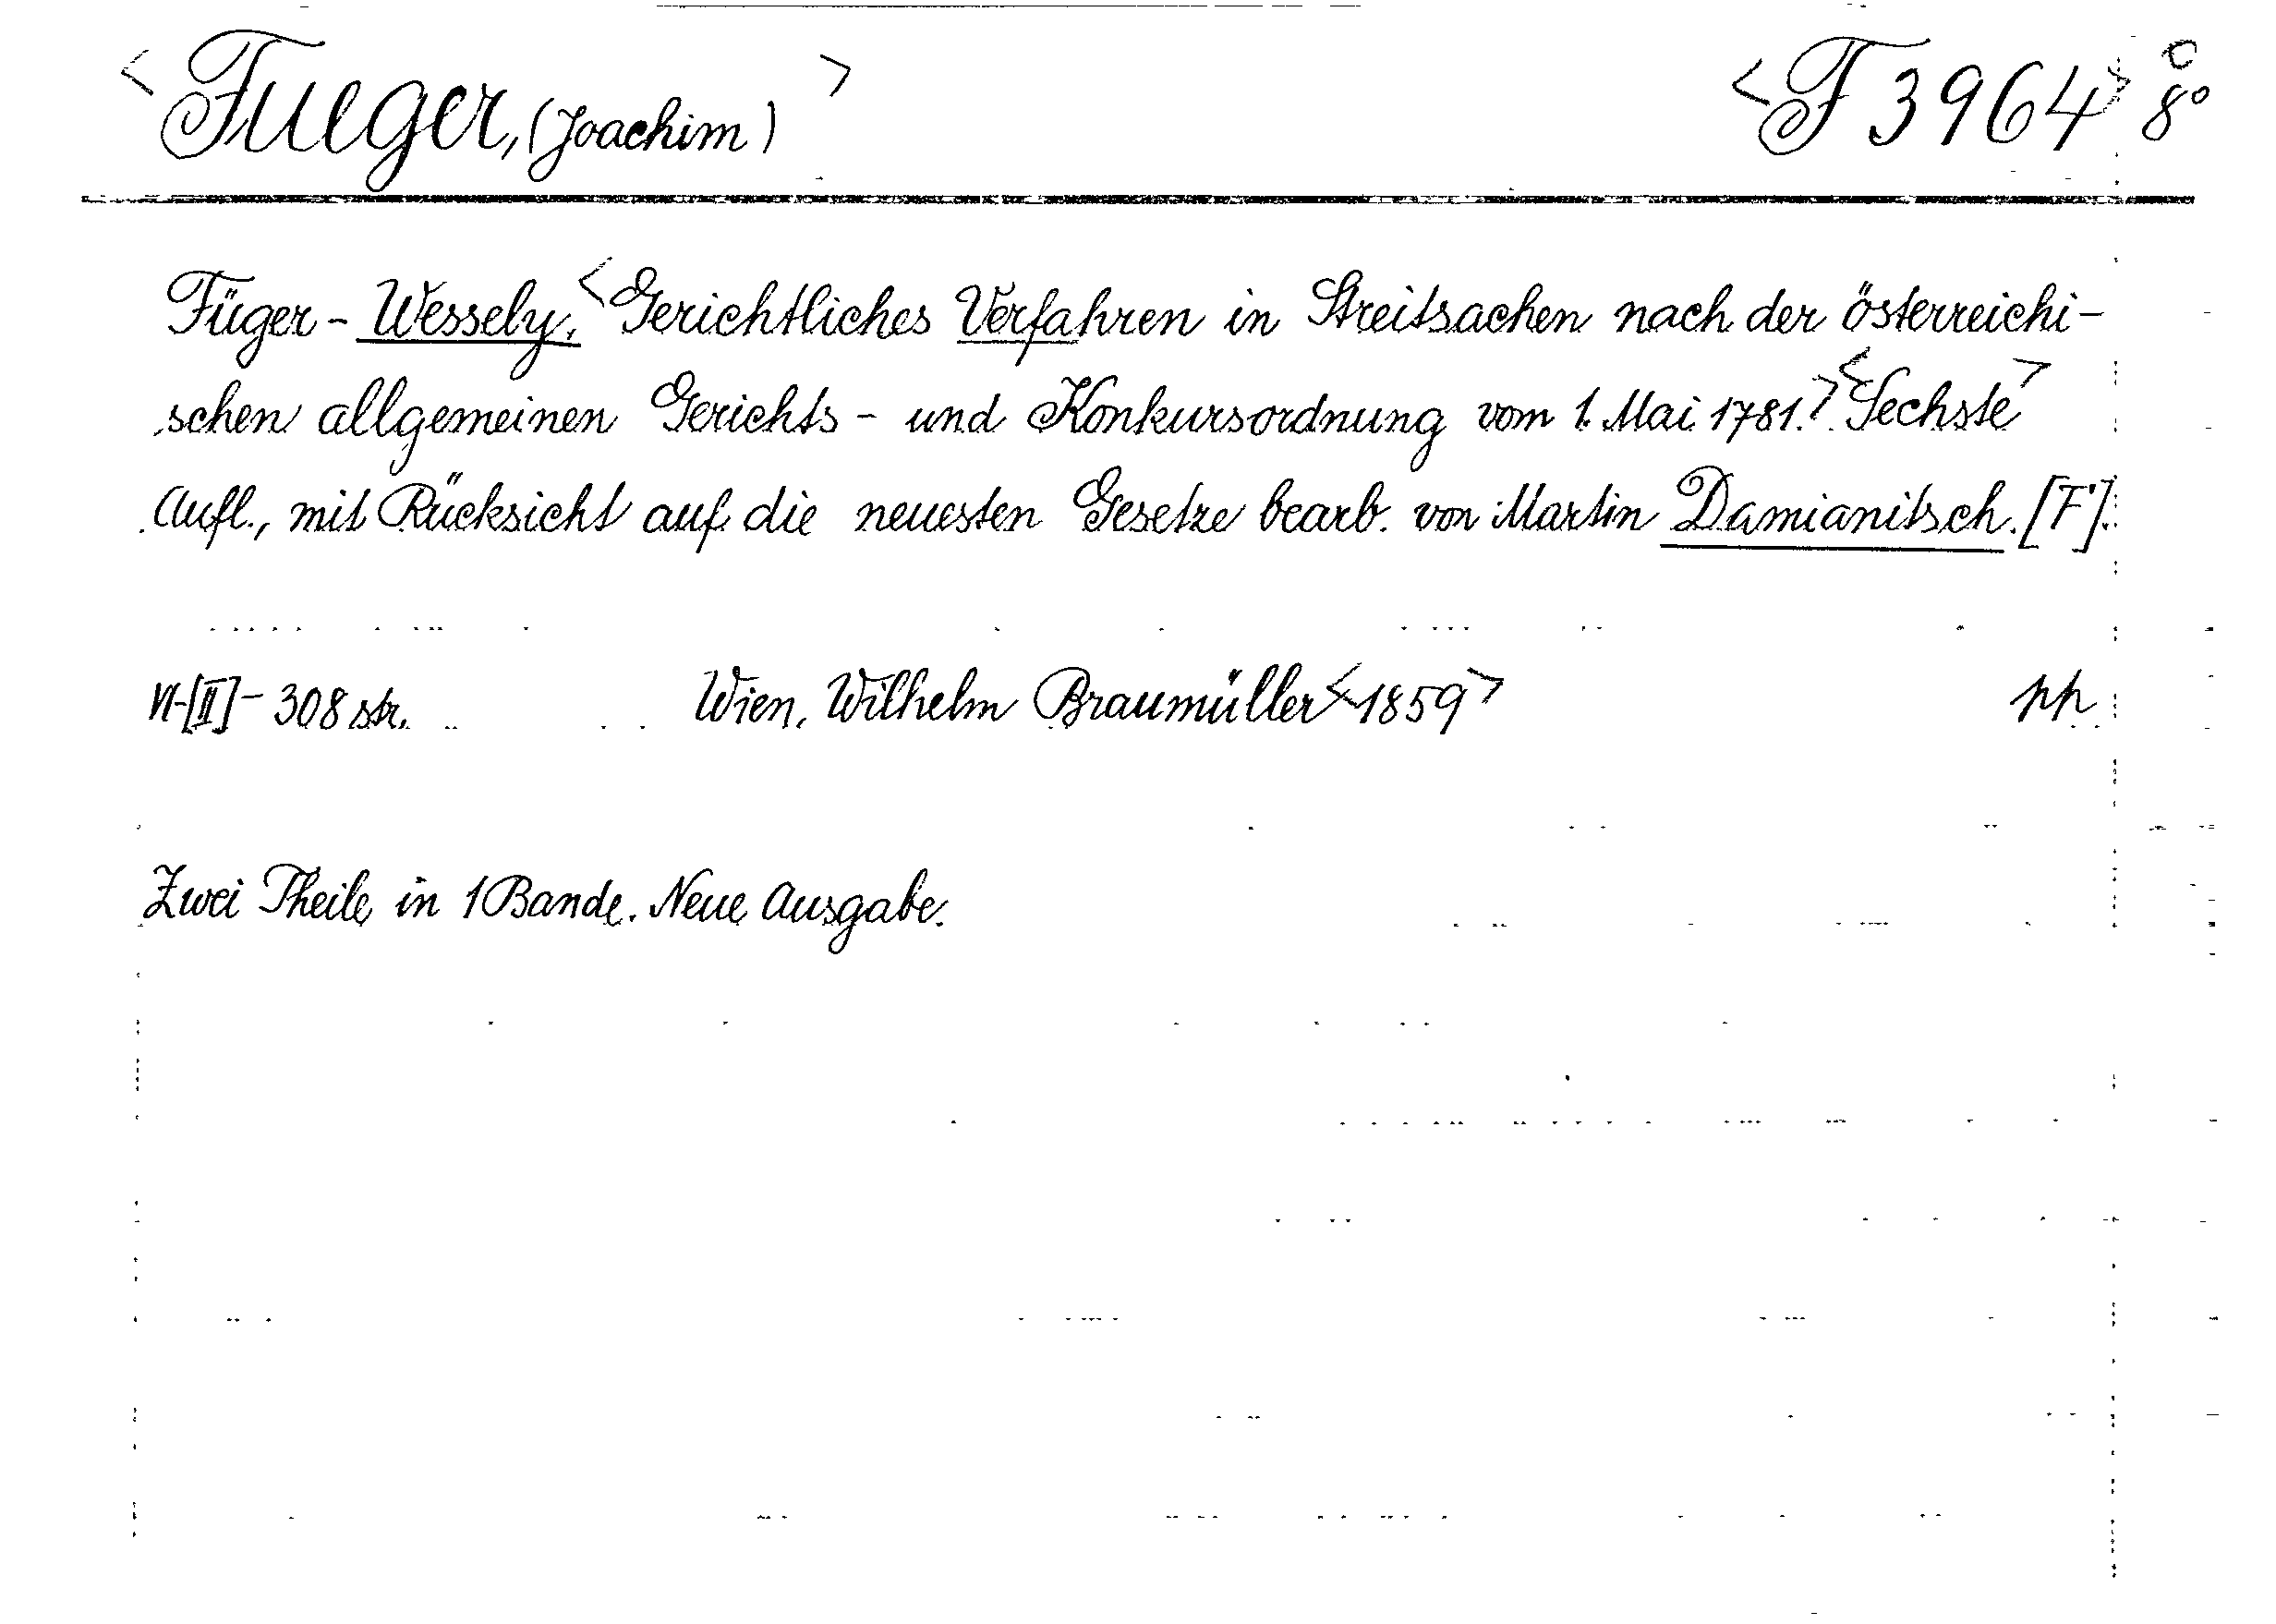 <Fueger, (Joachim)> <F 3964> C 8°
Füger-Wessely, <Gerichtliches Verfahren in Streitsachen nach der österreichi-
schen allgemeinen Gerichts- und Konkursordnung vom 1. Mai 1781.> <Sechste>
Aufl., mit Rücksicht auf die neuesten Gesetze bearb. von Martin Damianitsch. [F].
VI-[II]-308 str. Wien, Wilhelm Braumüller <1859> pp
Zwei Theile in 1 Bande. Neue Ausgabe.